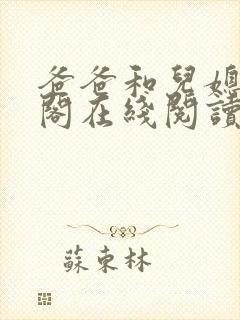 爸爸和兒媳
閣在綫閱讀
蘇東林